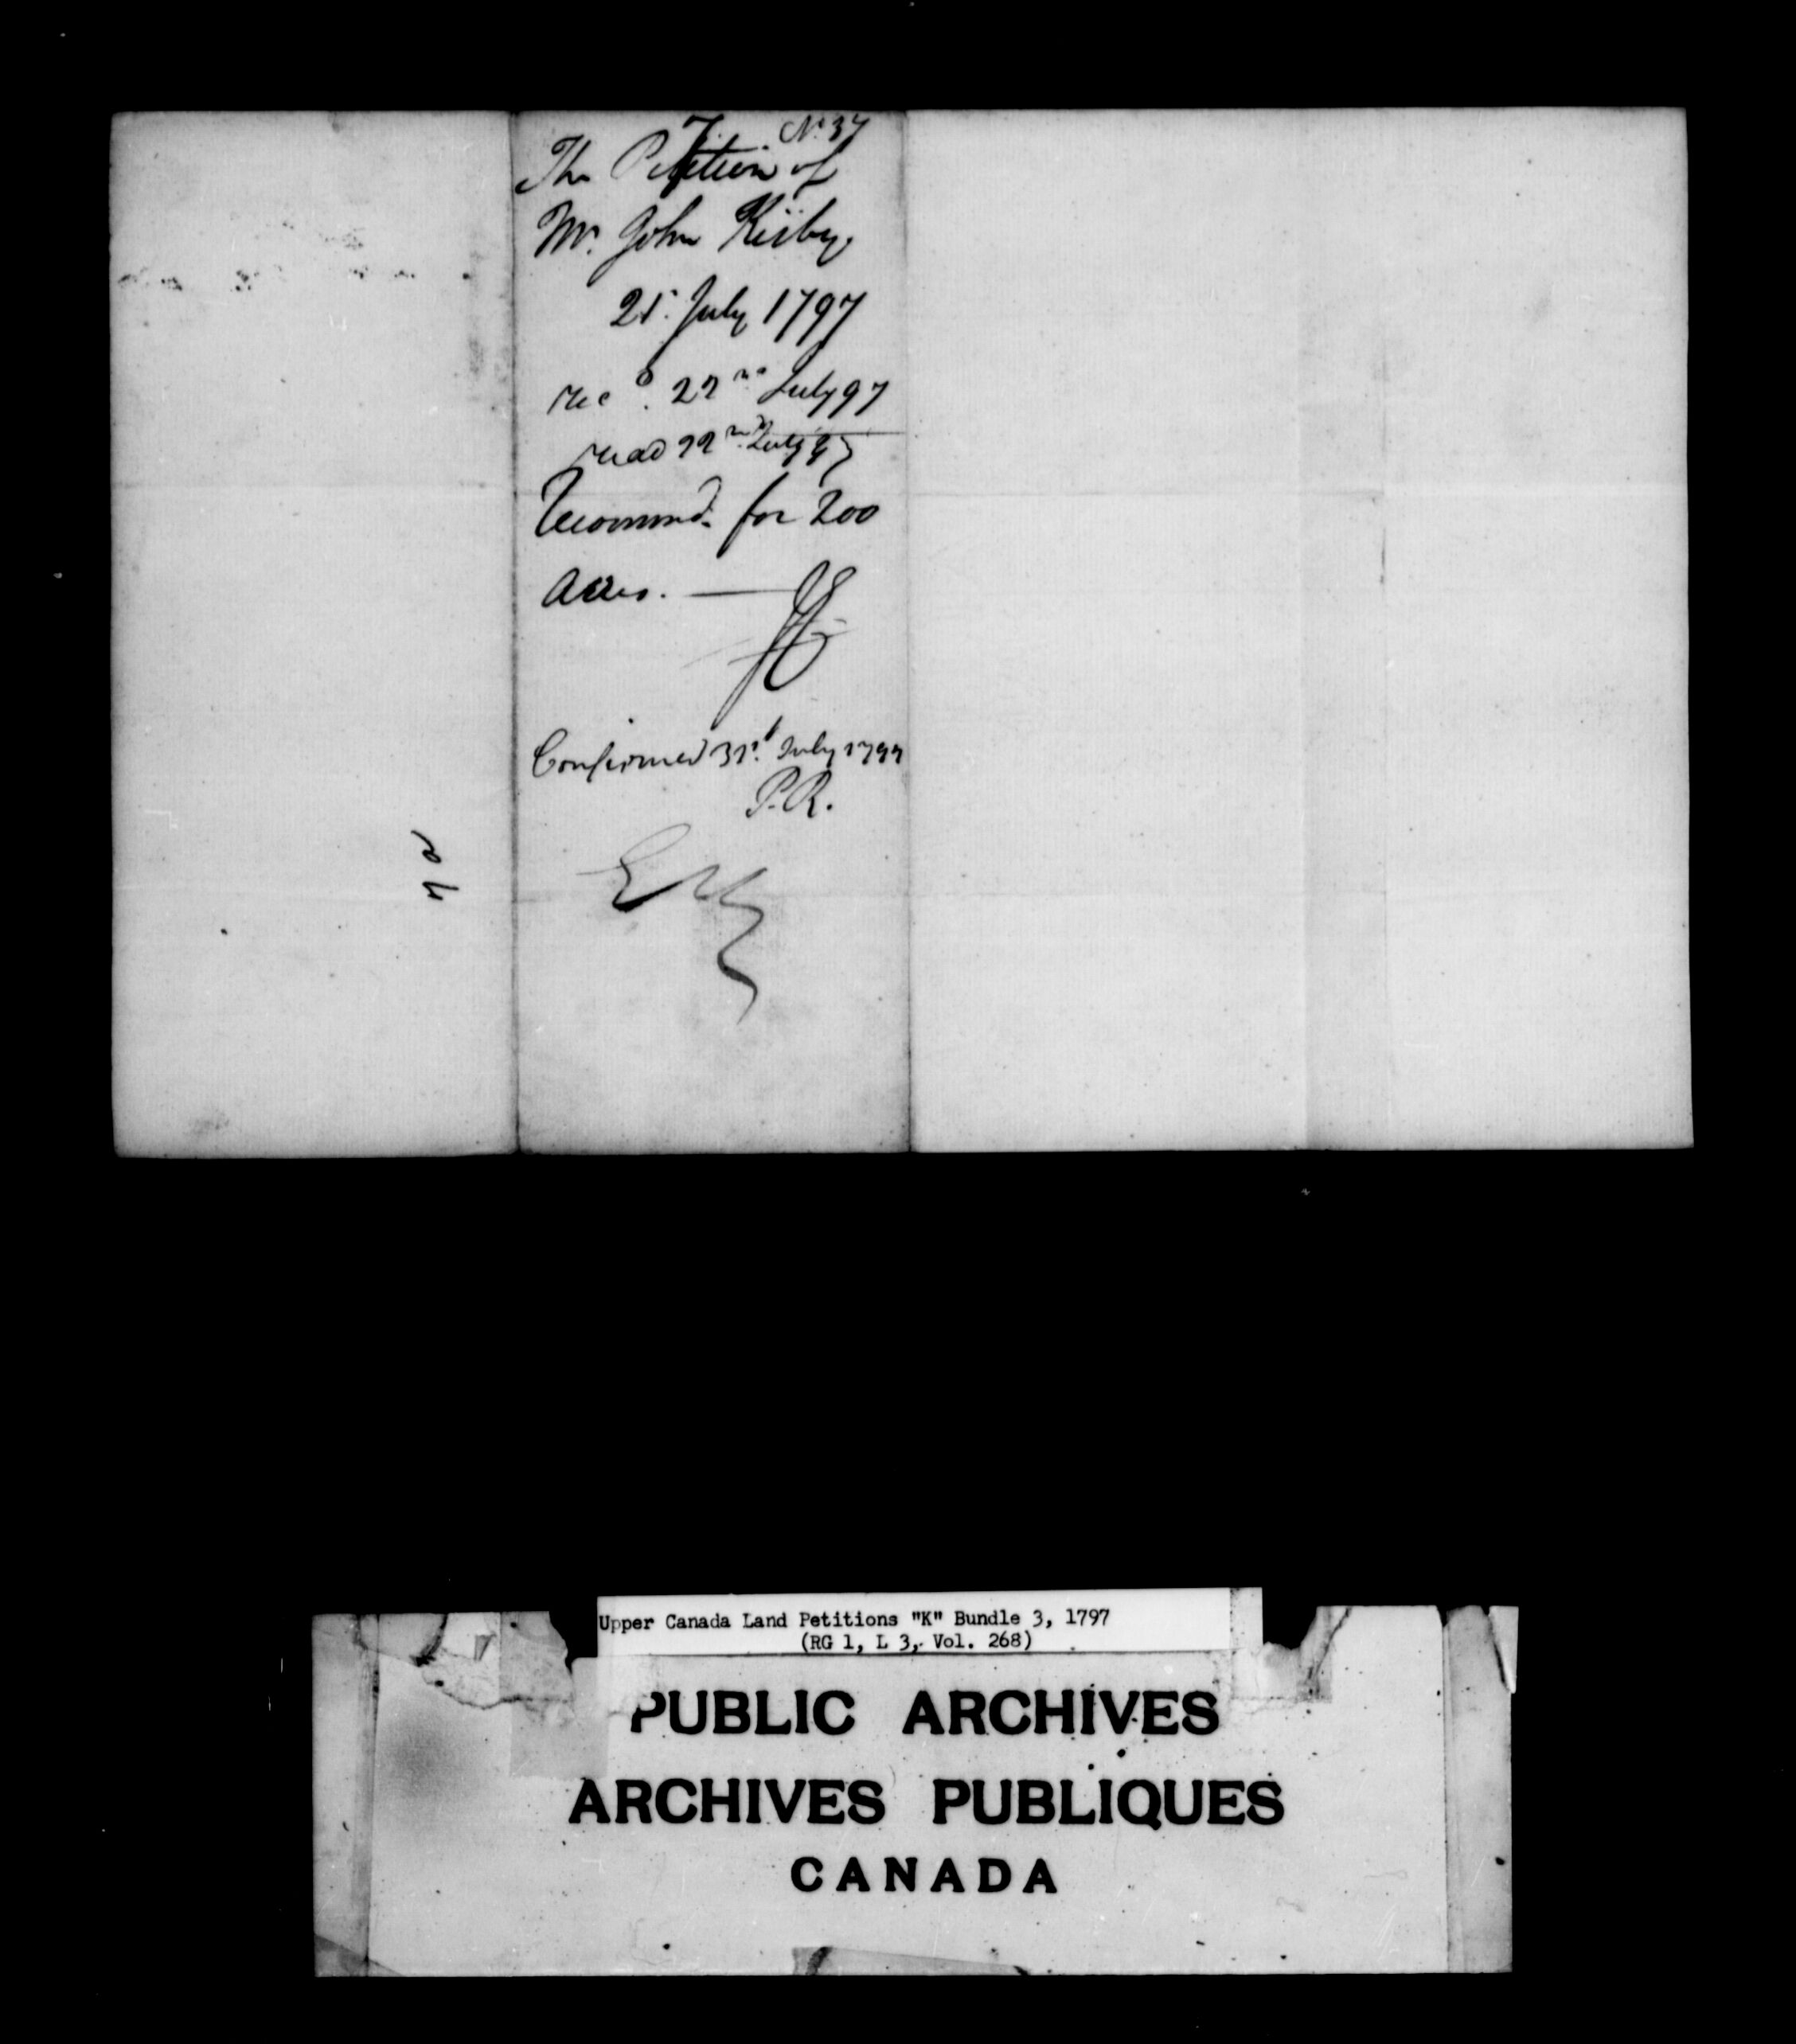 No. 37
The Petition of
Mr. John Kirby
21st. July 1797
recd. 22nd July 97
read 22nd. July 97
Recommd. for 200
Acres. —
Confirmed 31st. July 1797
P.R.
Upper Canada Land Petitions "K" Bundle 3, 1797
(RG 1, L 3, Vol. 268)
PUBLIC ARCHIVES
ARCHIVES PUBLIQUES
CANADA